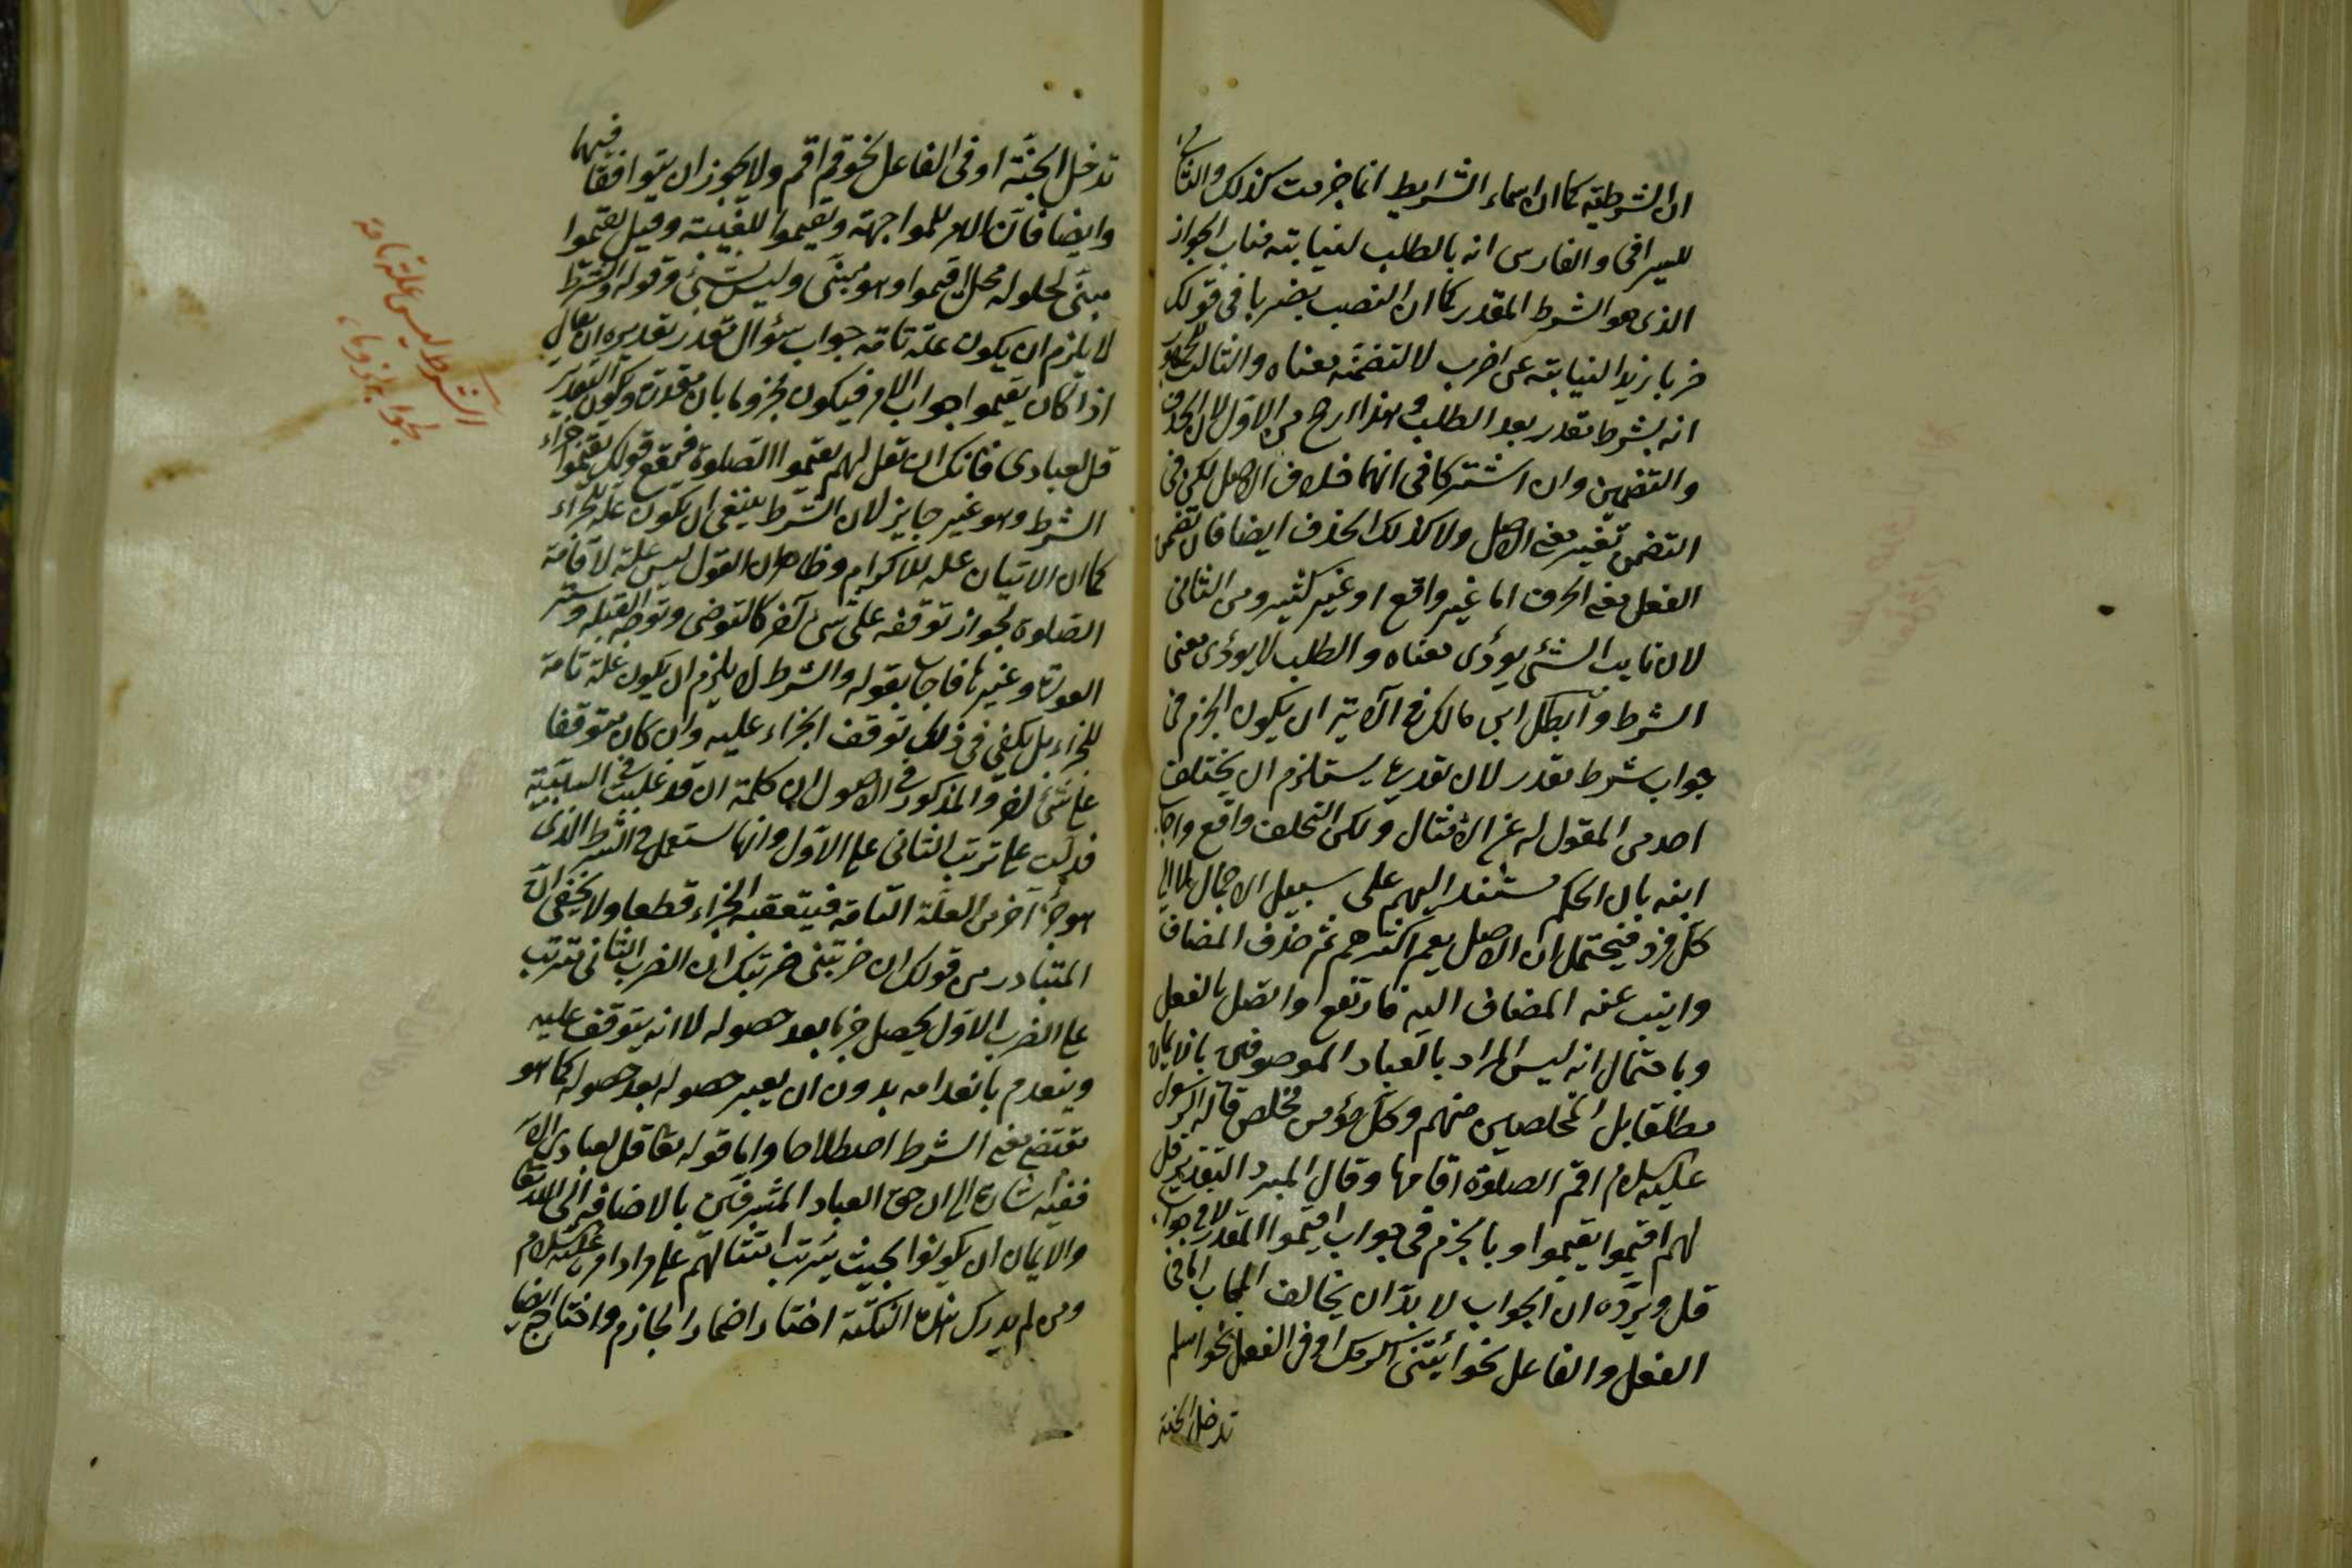 ان الشرطية كما ان اسماء الشرايط انما جزمت كذلك والثاني
للسيرافي والفارسي انه بالطلب لنيابته مناب الجواز
الذي هو الشرط المقدر كما ان النصب بضربا في قولك
ضربا زيدا لنيابته عن اضرب لا لتضمنه معناه والثالث للجمهور
انه بشرط مقدر بعد الطلب وهذا ارجح من الاول لان الحذف
والتضمين وان اشتركا في انهما خلاف الاصل لكن في
التضمن تغيير معنى الاصل ولا كذلك الحذف ايضا فان تضمن
الفعل معنى الحرف اما غير واقع او غير كثير ومن الثاني
لان نايب الشئ يودى معناه والطلب لا يودى معنى
الشرط وابطل ابن مالك في الآية ان يكون الجزم في
جواب شرط مقدر لان تقديره يستلزم ان يختلف
احد من المقول له عن الامتثال ولكن التخلف واقع واجاب
ابنه بان الحكم مسند اليهم على سبيل الاجمال لا الى
كل فرد فيحتمل ان الاصل يقم اكثرهم ثم حذف المضاف
وانيب عنه المضاف اليه فارتفع واتصل بالفعل
وباحتمال انه ليس المراد بالعباد الموصوفين بالايمان
مطلقا بل المخلصين منهم وكل مؤمن مخلص قال له الرسول
عليه السلام اقم الصلوة اقامها وقال المبرد التقدير قل
لهم اقيموا يقيموا وبالجزم في جواب اقيموا المقدر لا في جواب
قل ويرده ان الجواب لا بد ان يخالف المجاب اما في
الفعل والفاعل نحو ائتنى اكرمك او في الفعل نحو اسلم
تدخل الجنة
تدخل الجنة او في الفاعل نحو قم اقم ولا يجوز ان يتوافقا فيهما
وايضا فان الامر للمواجهة ويقيموا للغيبة وقيل يقيموا
مبنى لحلوله محل اقيموا وهو مبنى وليس بشئ وقوله والشرط
لا يلزم ان يكون علة تامة جواب سؤال مقدر تقديره ان يقال
اذا كان يقيموا جواب الامر فيكون مجزوما بان مقدرة ويكون التقدير
قل لعبادى فانك ان تقل لهم يقيموا الصلوة فيقع قولك يقيموا جزاء
الشرط وهو غير جايز لان الشرط ينبغى ان يكون علة للجزاء
كما ان الاتيان علة للاكرام وظاهر ان القول ليس علة لاقامة
الصلوة لجواز توقفه على شئ آخر كالتوضى وتوجه القبلة وستر
العورة وغيرها فاجاب بقوله والشرط لا يلزم ان يكون علة تامة
للجزاء بل يكفى في ذلك توقف الجزاء عليه وان كان متوقفا
على شئ آخر والمذكور في الاصول ان كلمة ان قد غلبت في السببية
فدلت على ترتب الثانى على الاول وانها تستعمل في الشرط الذى
هو جزء آخر من العلة التامة فيتعقبه الجزاء قطعا ولا يخفى ان
المتبادر من قولك ان ضربتنى ضربتك ان الضرب الثانى مترتب
على الضرب الاول يحصل جزما بعد حصوله لا انه يتوقف عليه
وينعدم بانعدامه بدون ان يعتبر حصوله بعد حصوله كما هو
مقتضى معنى الشرط اصطلاحا واما قوله تعا قل لعبادى الآية
ففيه اشارة الى ان حق العباد المشرفين بالاضافة الى الله تعا
والايمان ان يكونوا بحيث يترتب امتثالهم على مراد امره عليه السلام
ومن لم يدرك هذه النكتة اختار اضمار الجازم واحتاج ايضا
الشرط ليس علة تامة
لجواب